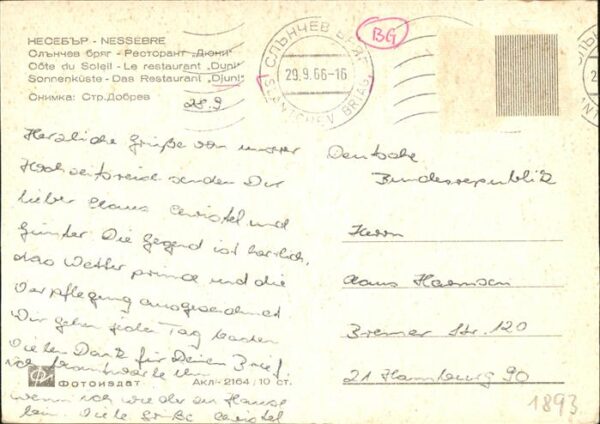 НЕСЕБЪР - NESSEBRE
Слънчев бряг - Ресторант „Дюни"
Côte du Soleil - Le restaurant „Duni"
Sonnenküste - Das Restaurant „Djuni"
Снимка: Стр. Добрев
28.9
СЛЪНЧЕВ БРЯГ
29.9.66-16
SLANTCHEV BRIAG
BG
Herzliche Grüße von unserer
Hochzeitsreise senden Dir
lieber Claus Christel und
Günter. Die Gegend ist herrlich,
das Wetter prima und die
Verpflegung ausgezeichnet
Wir gehen jeden Tag baden
Vielen Dank für Deinen Brief,
ich beantworte ihn
wenn ich wieder zu Hause
bin. Viele Grüße Christel
ФОТОИЗДАТ
Акл-2164/10 ст.
Deutsche
Bundesrepublik
Herrn
Claus Harmsen
Bremer Str. 120
21 Hamburg 90
1893